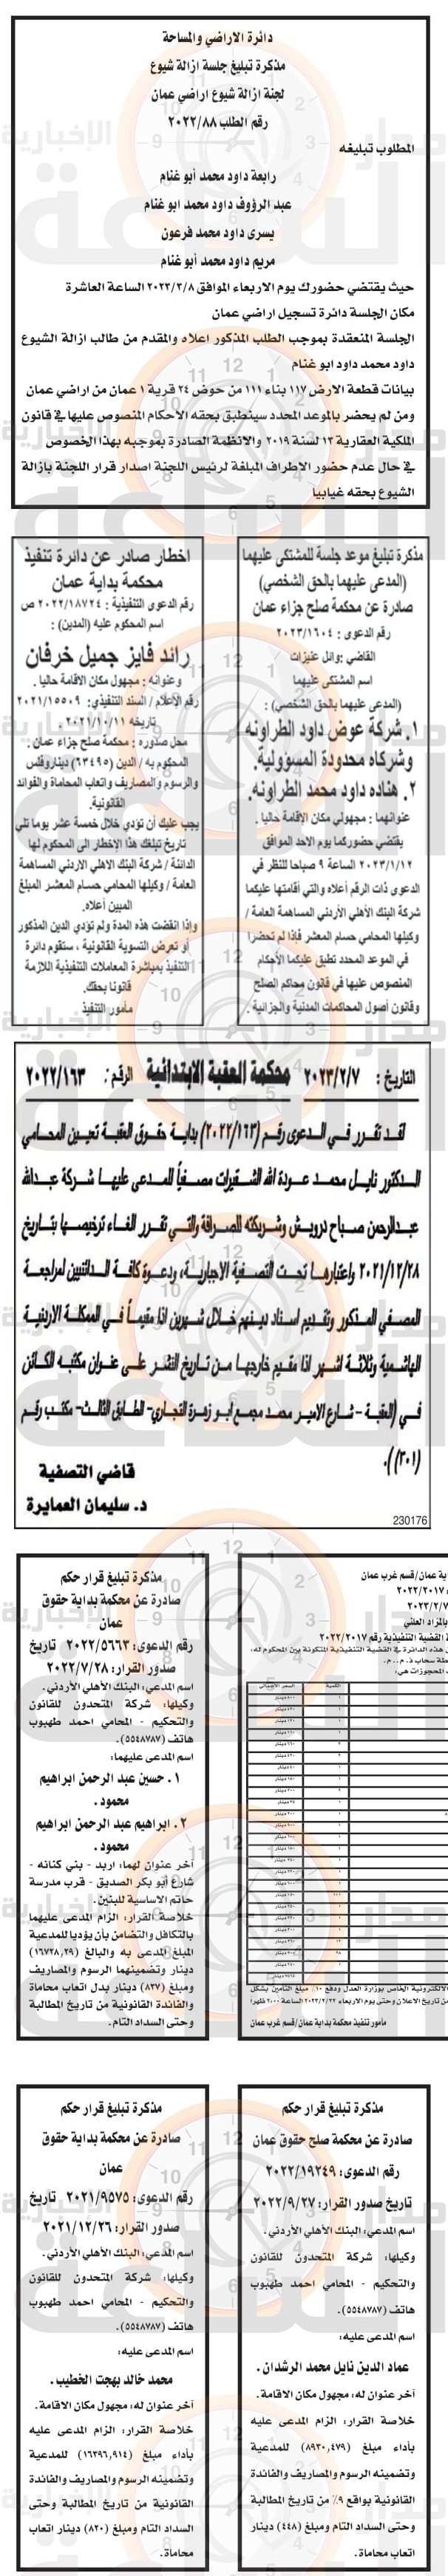 دائرة الاراضي والمساحة
مذكرة تبليغ جلسة ازالة شيوع
لجنة ازالة شيوع اراضي عمان
رقم الطلب ٢٠٢٢/٨٨
المطلوب تبليغه
رابعة داود محمد أبو غنام
عبد الرؤوف داود محمد ابو غنام
يسرى داود محمد فرعون
مريم داود محمد أبو غنام
حيث يقتضي حضورك يوم الاربعاء الموافق ٢٠٢٣/٣/٨ الساعة العاشرة
مكان الجلسة دائرة تسجيل اراضي عمان
الجلسة المنعقدة بموجب الطلب المذكور اعلاه والمقدم من طالب ازالة الشيوع
داود محمد داود ابو غنام
بيانات قطعة الارض ١١٧ بناء ١١١ من حوض ٢٤ قرية ١ عمان من اراضي عمان
ومن لم يحضر بالموعد المحدد سينطبق بحقه الأحكام المنصوص عليها في قانون
الملكية العقارية ١٣ لسنة ٢٠١٩ والانظمة الصادرة بموجبه بهذا الخصوص
في حال عدم حضور الاطراف المبلغة لرئيس اللجنة اصدار قرار اللجنة بازالة
الشيوع بحقه غيابيا
مذكرة تبليغ موعد جلسة للمشتكى عليهما
(المدعى عليهما بالحق الشخصي)
صادرة عن محكمة صلح جزاء عمان
رقم الدعوى : ٢٠٢٣/١٦٠٤
القاضي : وائل عنيزات
اسم المشتكى عليهما
(المدعى عليهما بالحق الشخصي) :
١. شركة عوض داود الطراونه
وشركاه محدودة المسؤولية.
٢. هناده داود محمد الطراونه.
عنوانهما : مجهولي مكان الإقامة حاليا .
يقتضي حضوركما يوم الاحد الموافق
٢٠٢٣/١/١٢ الساعة ٩ صباحا للنظر في
الدعوى ذات الرقم أعلاه والتي أقامتها عليكما
شركة البنك الأهلي الأردني المساهمة العامة /
وكيلها المحامي حسام المعشر فإذا لم تحضرا
في الموعد المحدد تطبق عليكما الأحكام
المنصوص عليها في قانون محاكم الصلح
وقانون أصول المحاكمات المدنية والجزائية .
اخطار صادر عن دائرة تنفيذ
محكمة بداية عمان
رقم الدعوى التنفيذية : ٢٠٢٢/١٨٧٢٤ ص
اسم المحكوم عليه (المدين) :
رائد فايز جميل خرفان
وعنوانه : مجهول مكان الاقامة حاليا .
رقم الإعلام / السند التنفيذي: ٢٠٢١/١٥٥٠٩
تاريخه ٢٠٢١/١٠/١١ .
محل صدوره : محكمة صلح جزاء عمان :
المحكوم به / الدين (٦٣٤٩٥) ديناروفلس
والرسوم والمصاريف واتعاب المحاماة والفوائد
القانونية.
يجب عليك أن تؤدي خلال خمسة عشر يوما تلي
تاريخ تبلغك هذا الإخطار الى المحكوم لها
الدائنة / شركة البنك الاهلي الاردني المساهمة
العامة / وكيلها المحامي حسام المعشر المبلغ
المبين أعلاه.
وإذا انقضت هذه المدة ولم تؤدي الدين المذكور
أو تعرض التسوية القانونية ، ستقوم دائرة
التنفيذ بمباشرة المعاملات التنفيذية اللازمة
قانونا بحقك.
مأمور التنفيذ
التاريخ : ٢٠٢٣/٢/٧ محكمة العقبة الابتدائية الرقم : ٢٠٢٢/١٦٣
لقد تقرر في الدعوى رقم (٢٠٢٢/١٦٣) بداية حقوق العقبة تعيين المحامي
الدكتور نايل محمد عودة الله الشقيرات مصفياً للمدعى عليها شركة عبدالله
عبدالرحمن صباح درويش وشريكته للصرافة والتي تقرر الغاء ترخيصها بتاريخ
٢٠٢١/١٢/٢٨ واعتبارها تحت التصفية الاجبارية، ودعوة كافة الدائنين لمراجعة
المصفي المذكور وتقديم اسناد دينهم خلال شهرين اذا مقيماً في المملكة الاردنية
الهاشمية وثلاثة اشهر اذا مقيم خارجها من تاريخ النشر على عنوان مكتبه الكائن
في (العقبة – شارع الامير محمد مجمع ابو زهرة التجاري- الطابق الثالث- مكتب رقم
(٣٠١)).
قاضي التصفية
د. سليمان العمايرة
230176
مذكرة تبليغ قرار حكم
صادرة عن محكمة بداية حقوق
عمان
رقم الدعوى: ٢٠٢٢/٥٦٦٣ تاريخ
صدور القرار: ٢٠٢٢/٧/٢٨
اسم المدعي: البنك الأهلي الأردني.
وكيلها: شركة المتحدون للقانون
والتحكيم - المحامي احمد طهبوب
هاتف (٥٥٤٨٧٨٧).
اسم المدعى عليهما:
١. حسين عبد الرحمن ابراهيم
محمود.
٢. ابراهيم عبد الرحمن ابراهيم
محمود.
آخر عنوان لهما: اربد - بني كنانه -
شارع أبو بكر الصديق - قرب مدرسة
حاتم الاساسية للبنين.
خلاصة القرار: الزام المدعى عليهما
بالتكافل والتضامن بأن يؤديا للمدعية
المبلغ المدعى به والبالغ (١٦٧٢٨,٢٩)
دينار وتضمينهما الرسوم والمصاريف
ومبلغ (٨٣٧) دينار بدل اتعاب محاماة
والفائدة القانونية من تاريخ المطالبة
وحتى السداد التام.
ية عمان/قسم غرب عمان
٢٠٢٢/٢٠١٧
بالمزاد العلني
القضية التنفيذية رقم ٢٠٢٢/٢٠١٧
هذه الدائرة في القضية التنفيذية المتكونة بين المحكوم له،
المحجوزات هي:
الكمية
السعر الاجمالي
الالكترونية الخاص بوزارة العدل ودفع ١٠٪ مبلغ التأمين بشكل
من تاريخ الاعلان وحتى يوم الاربعاء ٢٠٢٣/٢/٢٢ الساعة ٢:٠٠ ظهرا
مأمور تنفيذ محكمة بداية عمان/قسم غرب عمان
مذكرة تبليغ قرار حكم
صادرة عن محكمة صلح حقوق عمان
رقم الدعوى: ٢٠٢٢/١٩٢٤٩
تاريخ صدور القرار: ٢٠٢٢/٩/٢٧
اسم المدعي: البنك الأهلي الأردني.
وكيلها: شركة المتحدون للقانون
والتحكيم - المحامي احمد طهبوب
هاتف (٥٥٤٨٧٨٧).
اسم المدعى عليه:
عماد الدين نايل محمد الرشدان.
آخر عنوان له: مجهول مكان الاقامة.
خلاصة القرار: الزام المدعى عليه
بأداء مبلغ (٨٩٣٠,٤٧٩) للمدعية
وتضمينه الرسوم والمصاريف والفائدة
القانونية بواقع ٩٪ من تاريخ المطالبة
وحتى السداد التام ومبلغ (٤٤٨) دينار
اتعاب محاماة.
مذكرة تبليغ قرار حكم
صادرة عن محكمة بداية حقوق
عمان
رقم الدعوى: ٢٠٢١/٩٥٧٥ تاريخ
صدور القرار: ٢٠٢١/١٢/٢٦
اسم المدعي: البنك الأهلي الأردني.
وكيلها: شركة المتحدون للقانون
والتحكيم - المحامي احمد طهبوب
هاتف (٥٥٤٨٧٨٧).
اسم المدعى عليه:
محمد خالد بهجت الخطيب.
آخر عنوان له: مجهول مكان الاقامة.
خلاصة القرار: الزام المدعى عليه
بأداء مبلغ (١٦٣٩٦,٩١٤) للمدعية
وتضمينه الرسوم والمصاريف والفائدة
القانونية من تاريخ المطالبة وحتى
السداد التام ومبلغ (٨٢٠) دينار اتعاب
محاماة.